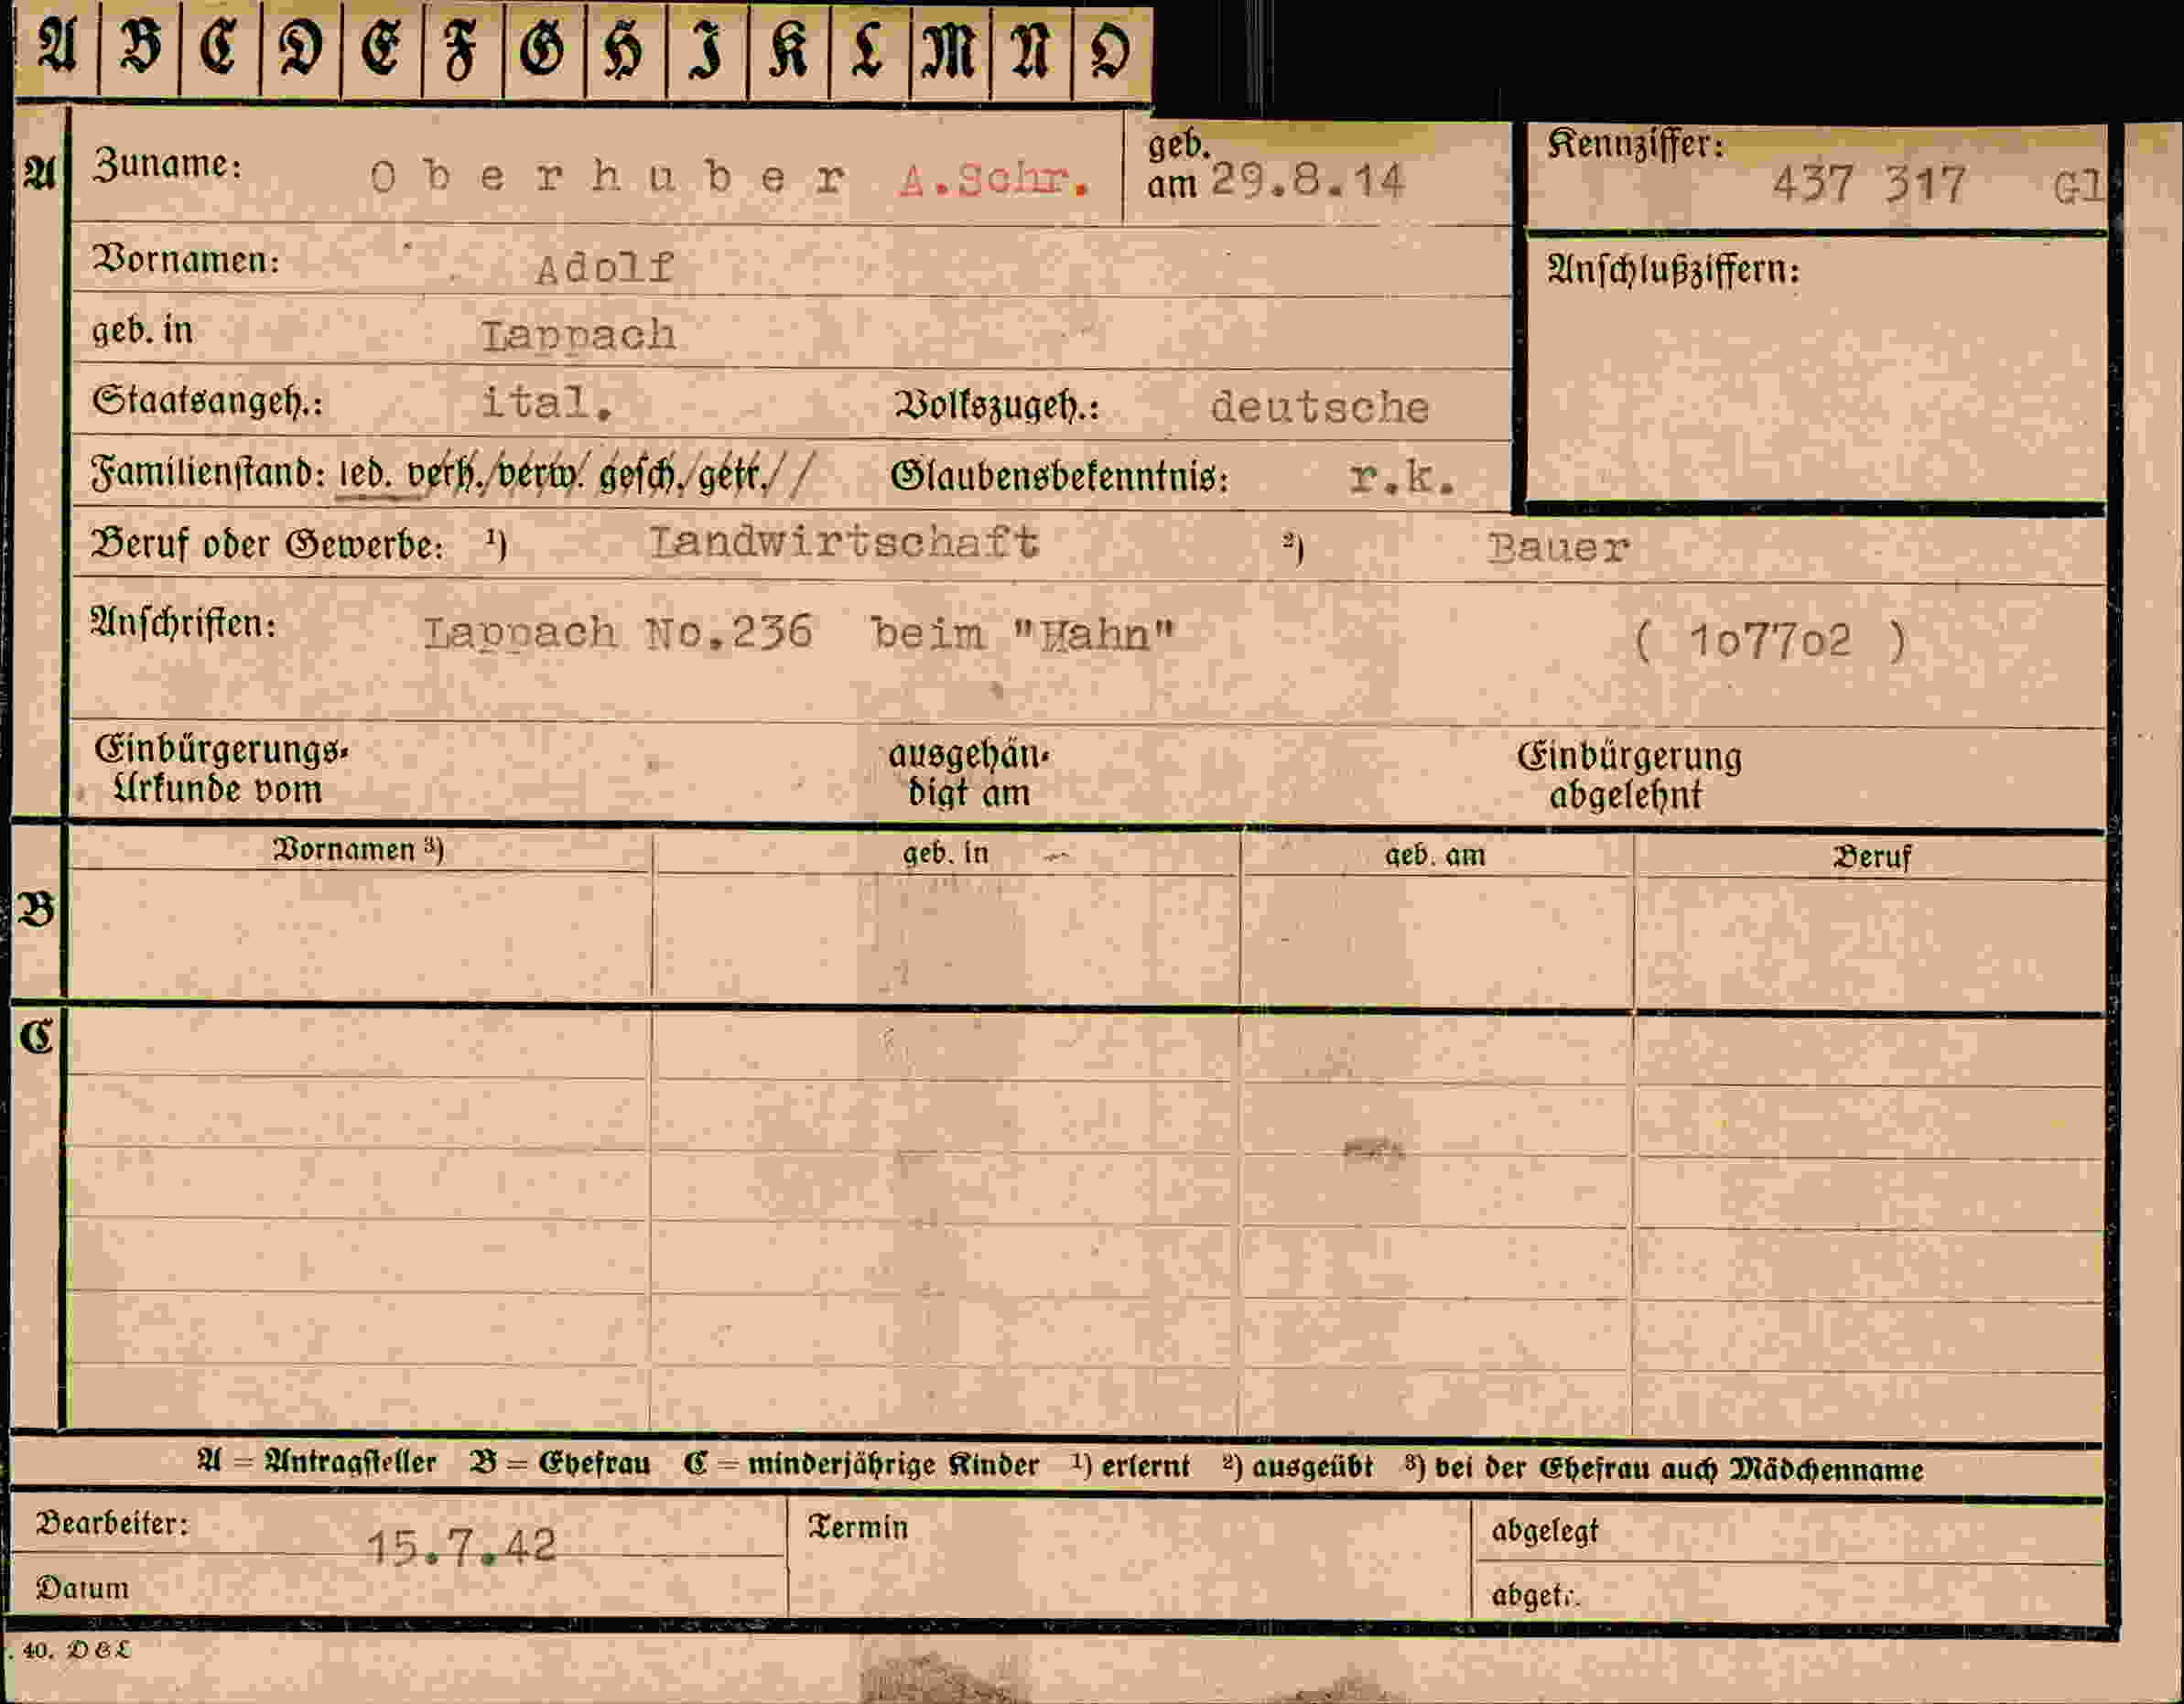 A B C D E F G H I K L M N O
A Zuname: Oberhuber A.Schr. geb. am 29.8.14 Kennziffer: 437 317 Gl
Vornamen: Adolf Anschlußziffern:
geb. in Lappach
Staatsangeh.: ital. Volkszugeh.: deutsche
Familienstand: led. verh./verw. gesch./getr./ / Glaubensbekenntnis: r.k.
Beruf oder Gewerbe: ¹) Landwirtschaft ²) Bauer
Anschriften: Lappach No.236 beim "Hahn" ( 107702 )
Einbürgerungs- ausgehän- Einbürgerung
Urkunde vom digt am abgelehnt
Vornamen ³) geb. in geb. am Beruf
B
C
A = Antragsteller B = Ehefrau C = minderjährige Kinder ¹) erlernt ²) ausgeübt ³) bei der Ehefrau auch Mädchenname
Bearbeiter: 15.7.42 Termin abgelegt
Datum abgetr.
. 40. D&L